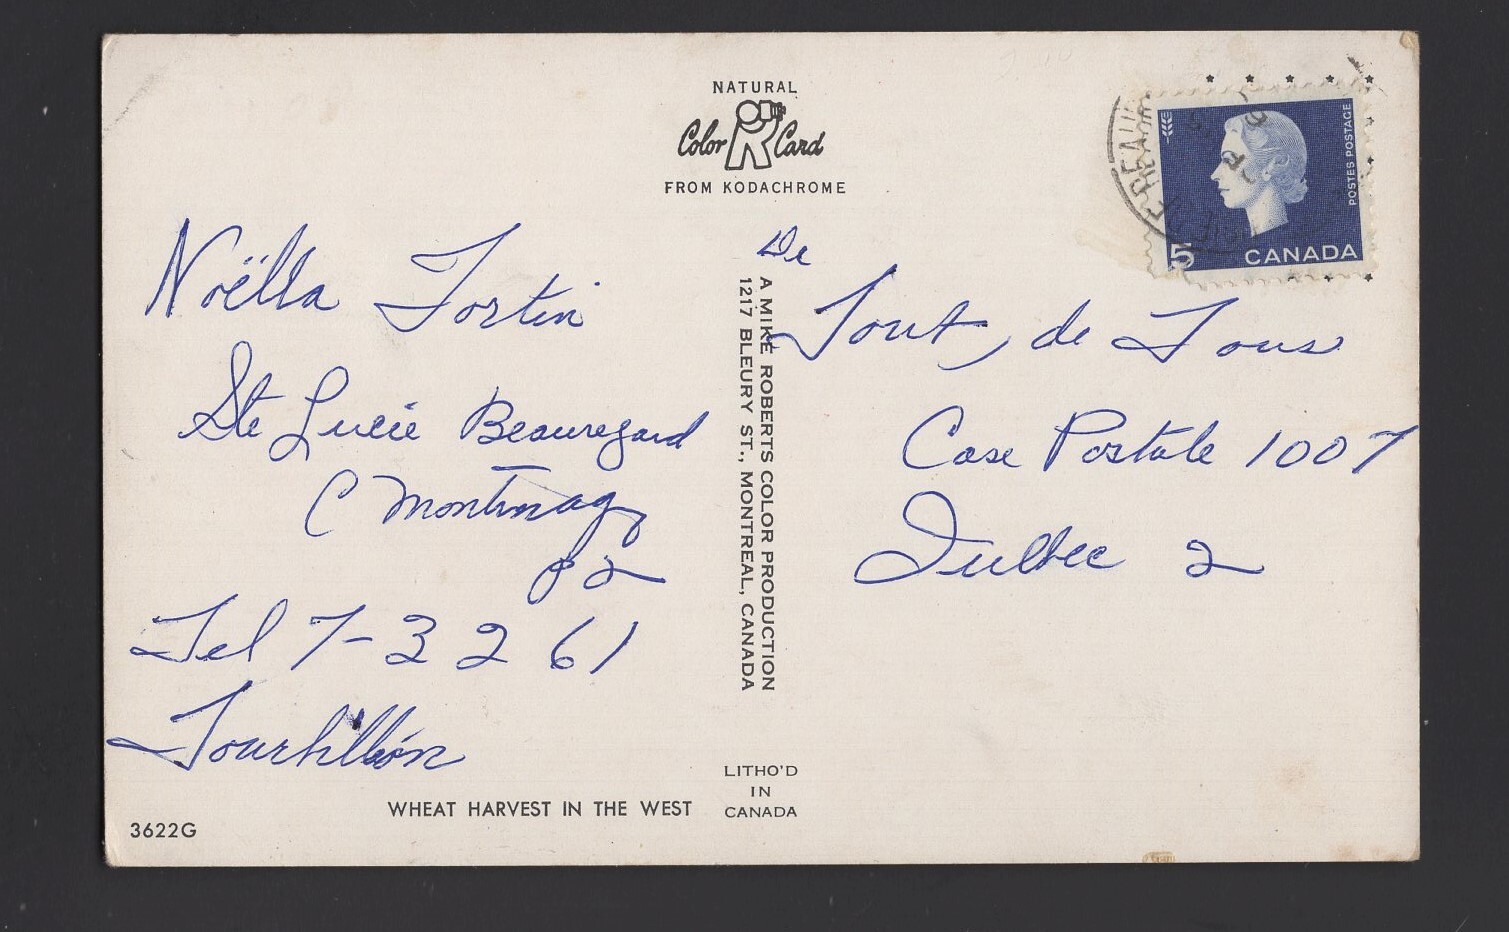 NATURAL
Color Card
FROM KODACHROME
5
CANADA
POSTES POSTAGE
Noëlla Fortin
Ste Lucie Beauregard
C Montmagy
P2
Tel 7-3261
Tourbillion
WHEAT HARVEST IN THE WEST
3622G
A MIKE ROBERTS COLOR PRODUCTION
1217 BLEURY ST., MONTREAL, CANADA
LITHO'D
IN
CANADA
De
Tout, de Tous
Case Postale 1007
Québec 2